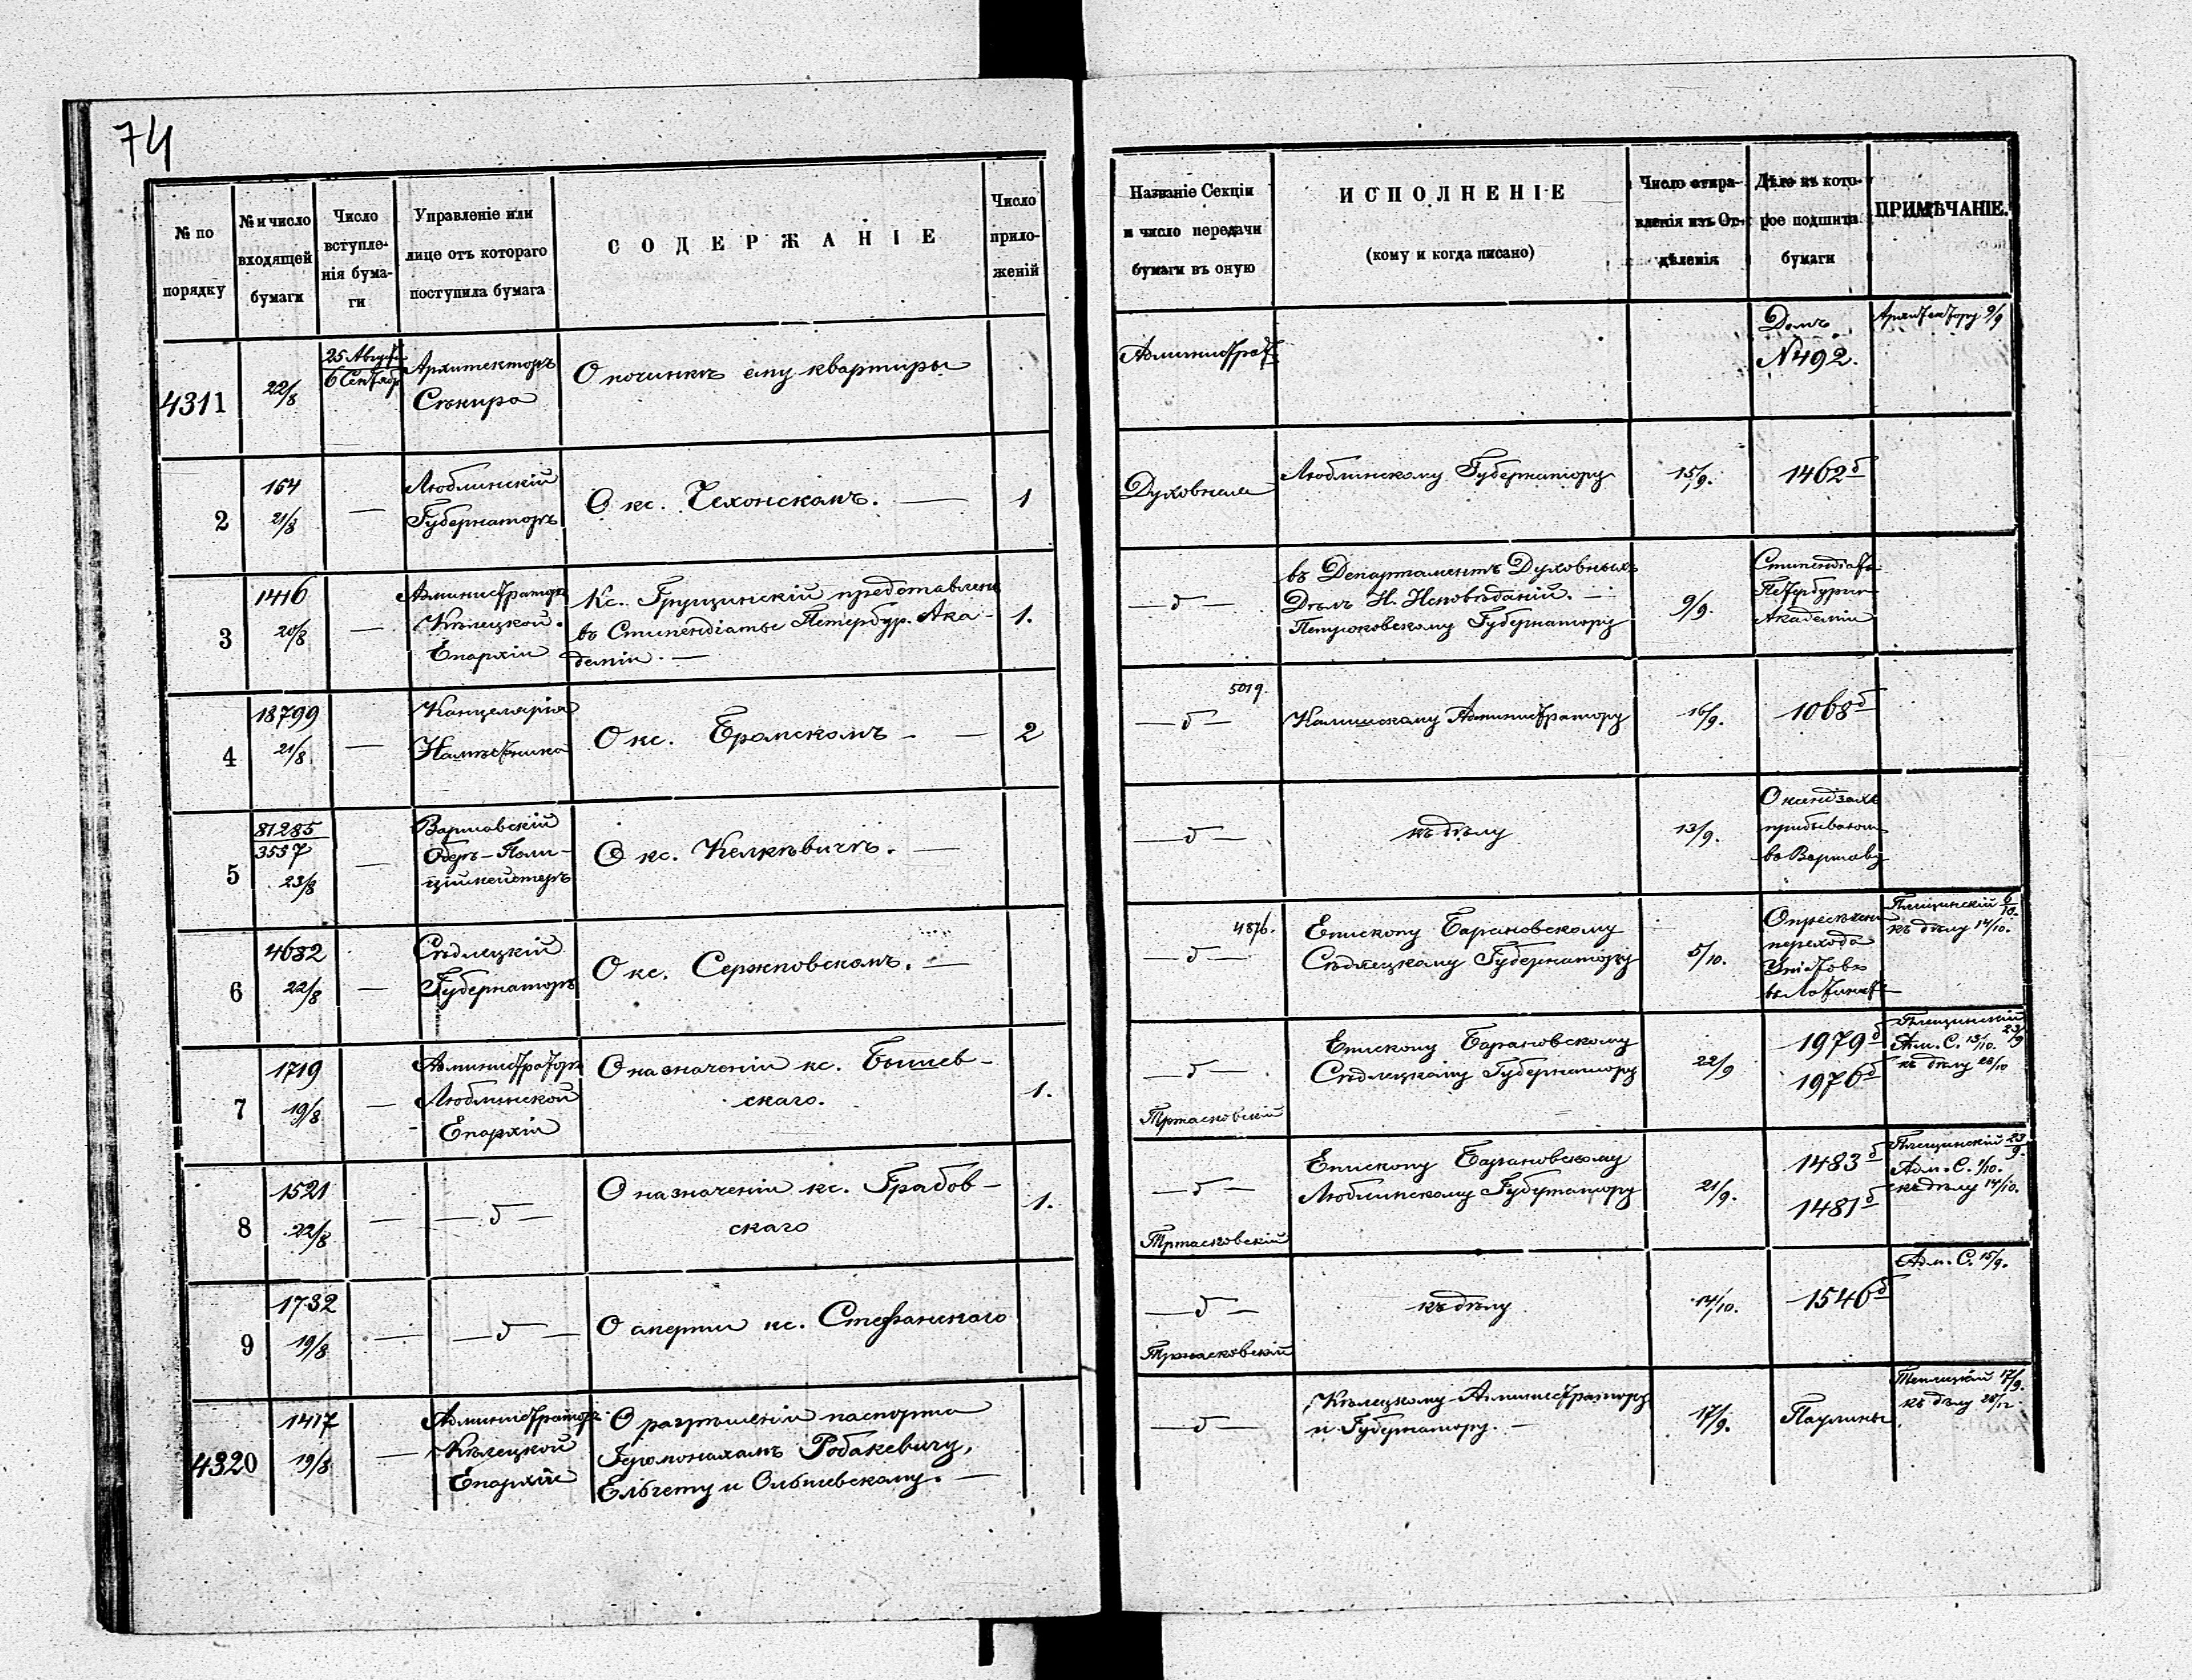 74
№ по порядку
№ и число входящей бумаги
Число вступленія бумаги
Управленіе или лице отъ котораго поступила бумага
СОДЕРЖАНІЕ
Число приложеній
Названіе Секціи и число передачи бумаги въ оную
ИСПОЛНЕНІЕ
(кому и когда писано)
Число отправленія изъ Отдѣленія
Дѣло въ которое подшита бумаги
ПРИМѢЧАНІЕ.
4311
22/8
25 Августа
6 Сентябр
Архитекторъ
Сѣкира
О починкѣ ему квартиры
Администрат
Домъ
№492.
Архитектору 9/9
2
164
21/8
—
Люблинскій
Губернаторъ
О кс. Чехонскомъ. —
1
Духовная
Люблинскому Губернатору
15/9.
1462б
3
1416
20/8
—
Администраторъ
Кѣлецкой
Епархіи
Кс. Грущинскій представленъ
въ Стипендіаты Петербур. Ака-
деміи. —
1.
— б —
въ Департаментъ Духовныхъ
Дѣлъ И. Исповѣданій. —
Петроковскому Губернатору
9/9.
Стипендіаты
Петербургск
Академіи
4
18799
21/8
—
Канцелярія
Намѣстника
О кс. Бромскомъ — —
2
5019.
— б —
Калишскому Администратору
16/9.
1068б
5
81285
3557
23/8
—
Варшавскій
Оберъ-Поли-
ціймейстеръ
О кс. Келкѣвичѣ. —
— б —
къ дѣлу
13/9.
О ксендзахъ
прибывающ
въ Варшаву
6
4682
22/8
—
Сѣдлецкій
Губернаторъ
О кс. Сержповскомъ. —
4876.
— б —
Епископу Барановскому
Сѣдлецкому Губернатору
5/10.
О пресѣчен
перехода
Уніятовъ
въ Латинст
6/10.
къ дѣлу 14/10.
7
1719
19/8
—
Администраторъ
Люблинской
Епархіи
О назначеніи кс. Бышев-
скаго.
1.
— б —
Епископу Барановскому
Сѣдлецкому Губернатору
22/9
1979б
1976б
23/9
Адм. С. 13/10.
къ дѣлу 28/10
8
1521
22/8
—
— б —
О назначеніи кс. Грабов-
скаго
1.
— б —
Епископу Барановскому
Люблинскому Губернатору
21/9.
1483б
1481б
23/9.
Адм. С. 1/10.
къ дѣлу 14/10.
9
1732
19/8
—
— б —
О смерти кс. Стефанскаго
— б —
къ дѣлу
14/10.
1546б
Адм. С. 15/9.
4320
1417
19/8
—
Администраторъ
Кѣлецкой
Епархіи
О разрѣшеніи паспорта
Іеромонахамъ Робакевичу,
Ельчету и Ольшевскому. —
— б —
Кѣлецкому Администратору
и Губернатору. —
17/9.
Паулины
17/9.
къ дѣлу 28/12